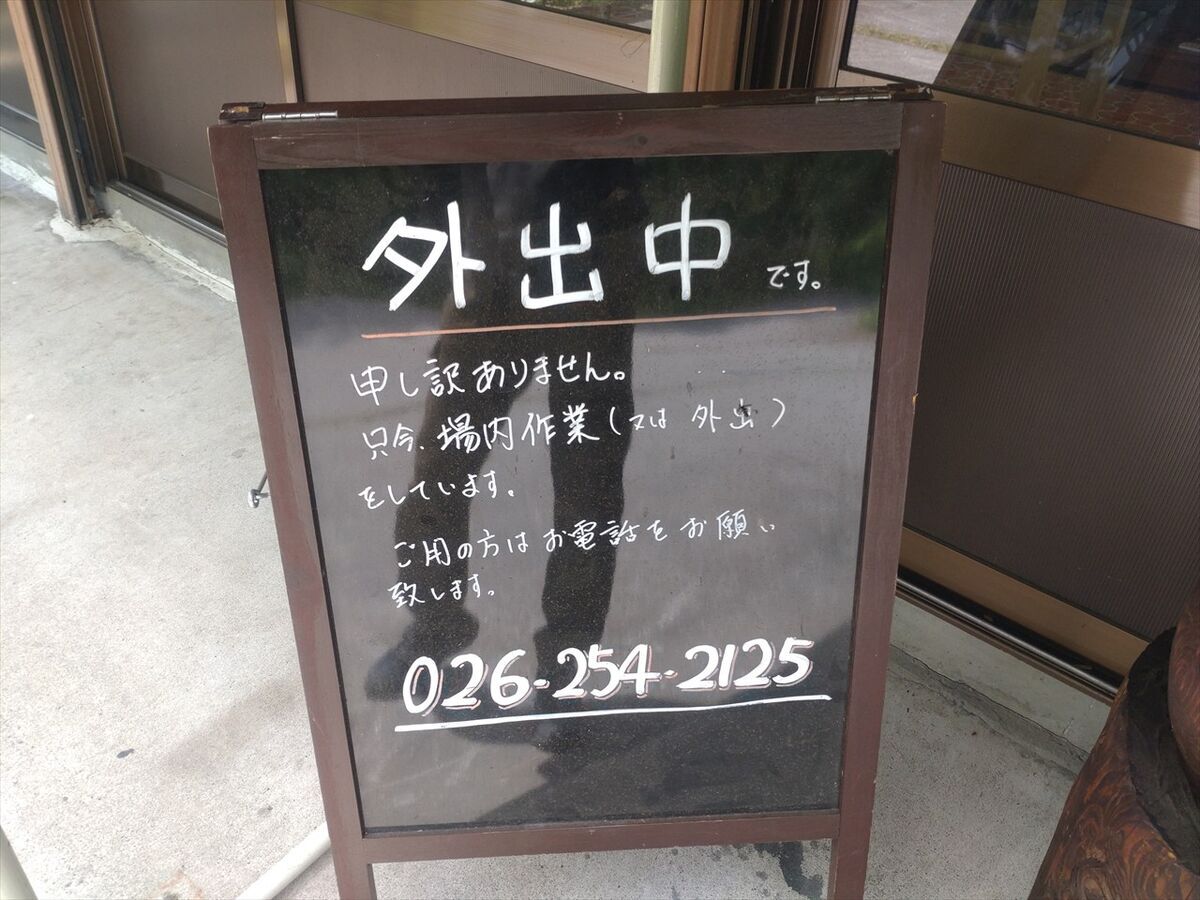 外出中です。
申し訳ありません。
只今、場内作業(又は 外出)
をしています。
ご用の方はお電話をお願い
致します。
026-254-2125